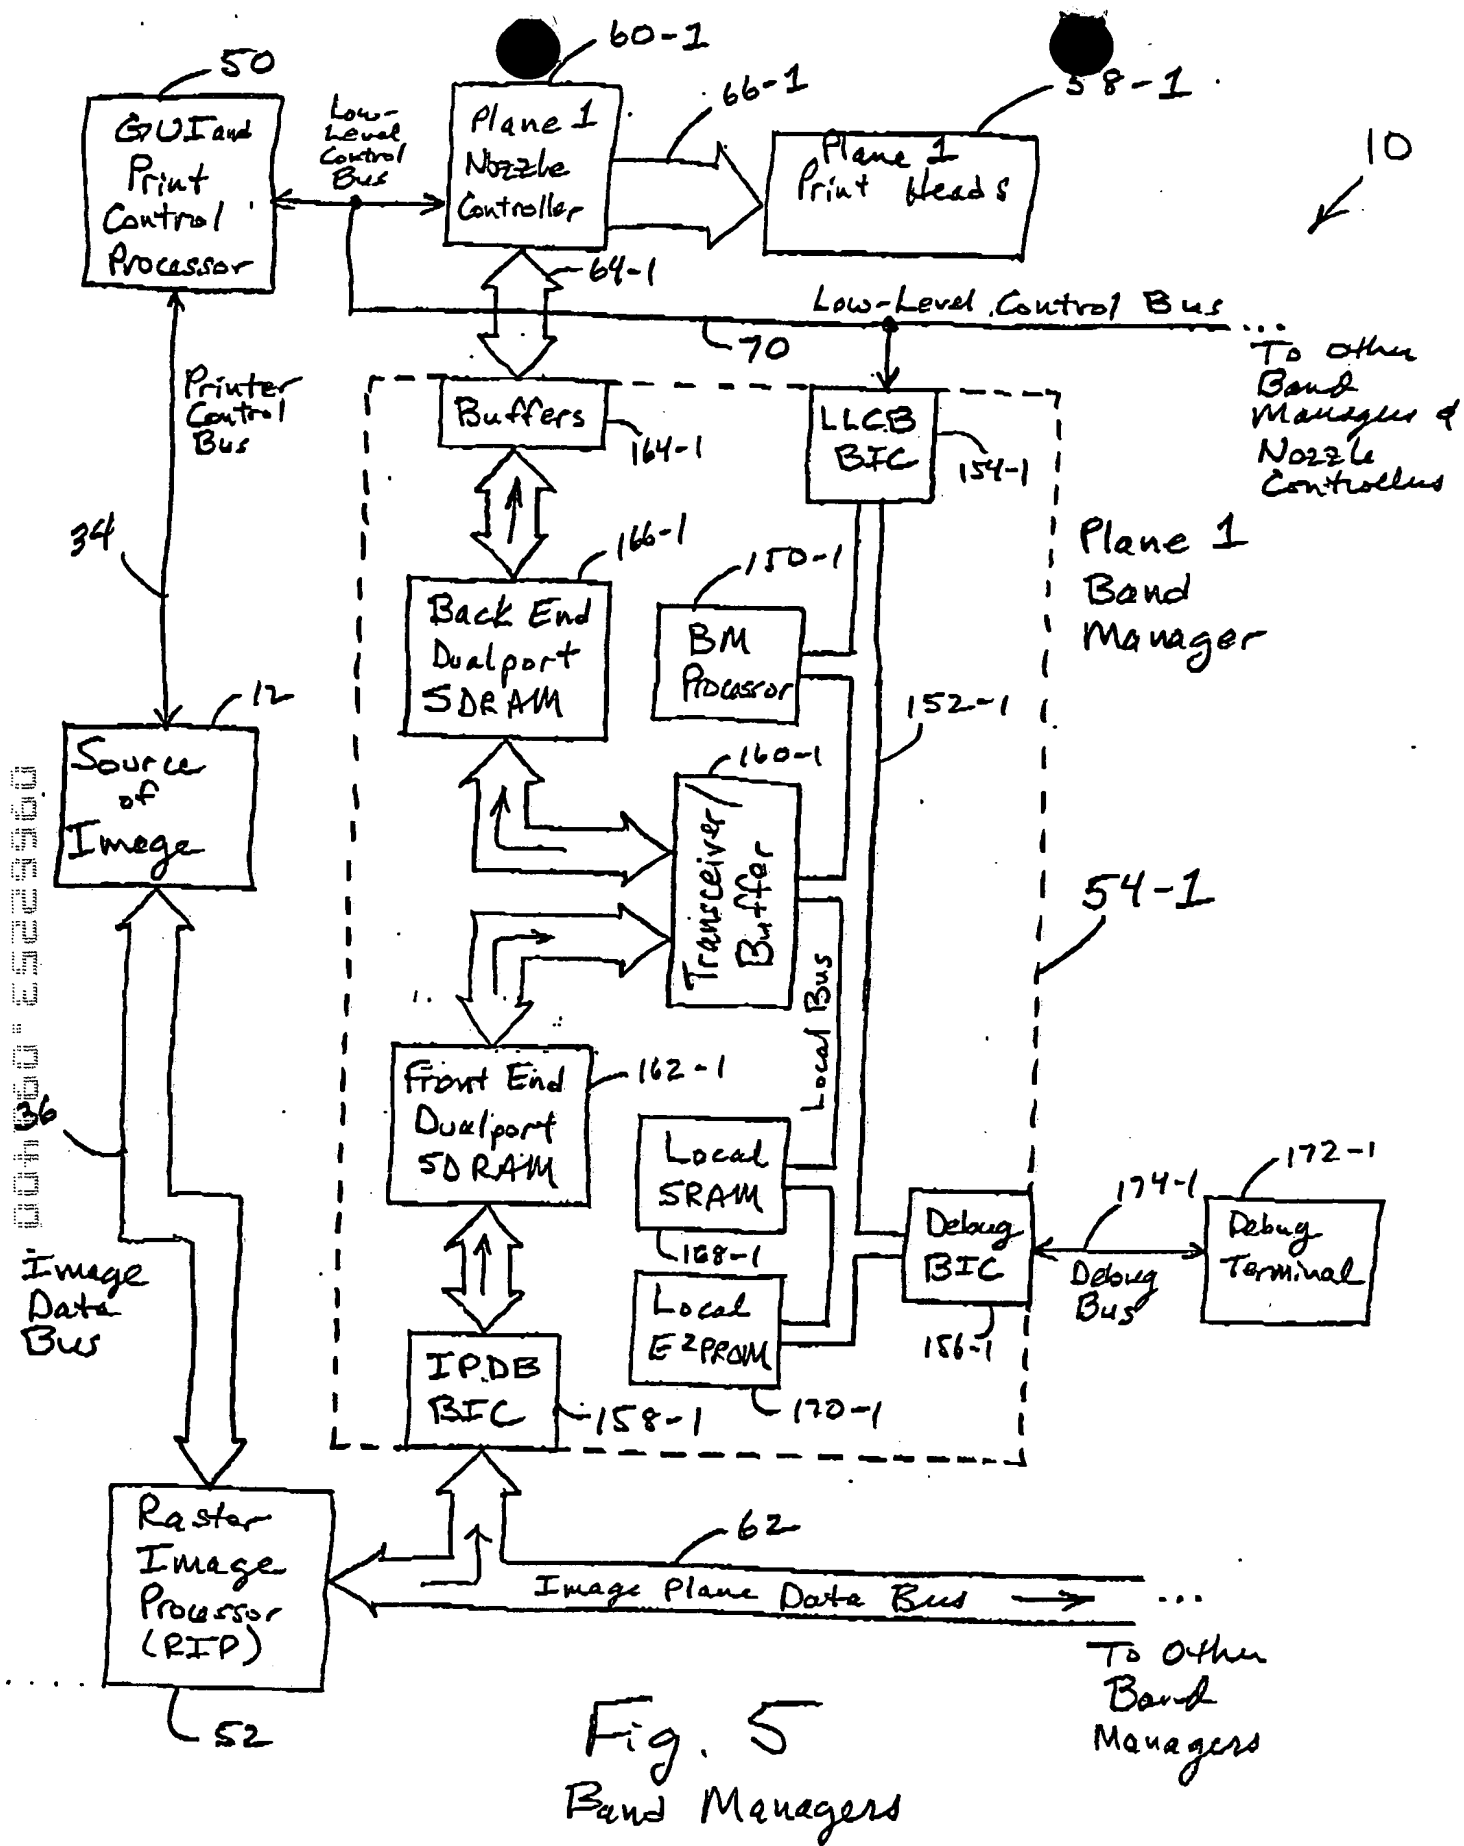 60-1
50
66-1
58-1
10
GUI and
Print
Control
Processor
Low-
Level
Control
Bus
Plane 1
Nozzle
Controller
Plane 1
Print Heads
64-1
Low-Level Control Bus
70
...
To Other
Band
Managers &
Nozzle
Controllers
Printer
Control
Bus
Buffers
164-1
LLCB
BIC
154-1
34
166-1
150-1
Plane 1
Band
Manager
Back End
Dualport
SDRAM
BM
Processor
12
152-1
Source
of
Image
160-1
Transceiver/
Buffer
54-1
Local Bus
36
Front End
Dualport
SDRAM
162-1
Local
SRAM
168-1
174-1
172-1
Debug
BIC
Debug
Bus
Debug
Terminal
156-1
Image
Data
Bus
Local
E2PROM
170-1
IPDB
BIC
158-1
Raster
Image
Processor
(RIP)
52
62
Image Plane Data Bus
...
To Other
Band
Managers
Fig. 5
Band Managers